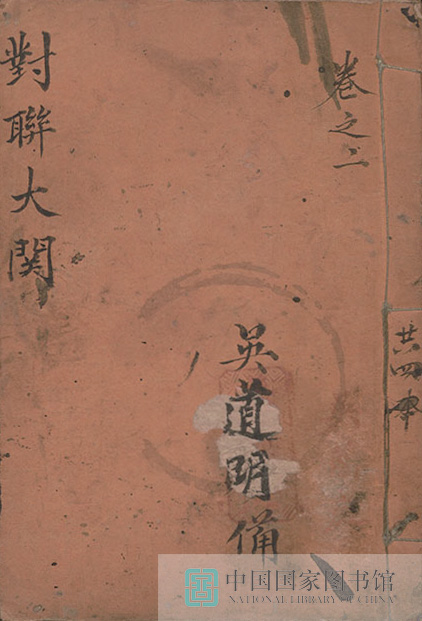 卷之二
共四本
吴道明備
對聯大関
中国国家图书馆
NATIONAL LIBRARY OF CHINA